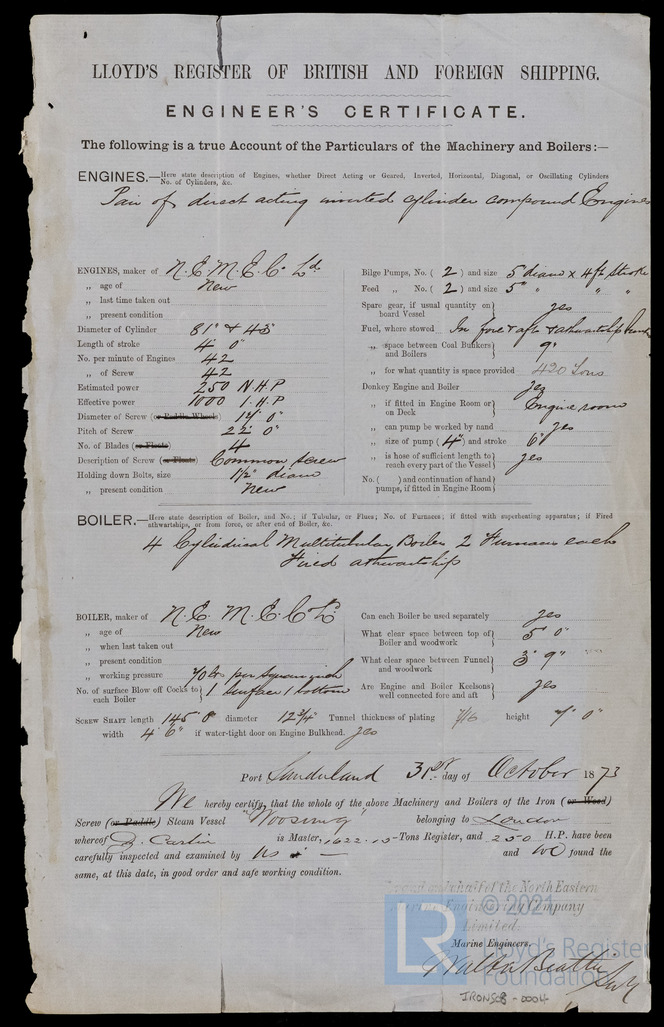 LLOYD'S REGISTER OF BRITISH AND FOREIGN SHIPPING.
ENGINEER'S CERTIFICATE.
The following is a true Account of the Particulars of the Machinery and Boilers:—
ENGINES.—Here state description of Engines, whether Direct Acting or Geared, Inverted, Horizontal, Diagonal, or Oscillating Cylinders
No. of Cylinders, &c.
Pair of direct acting inverted cylinder compound Engines
ENGINES, maker of N.E.M.E.Co. Ld.
„ age of New
„ last time taken out
„ present condition
Diameter of Cylinder 81" & 43"
Length of stroke 4 0"
No. per minute of Engines 42
„ of Screw 42
Estimated power 250 N.H.P
Effective power 1000 I.H.P
Diameter of Screw (or Paddle Wheel) 0"
Pitch of Screw 22' 0"
No. of Blades (or Floats) 4
Description of Screw (or Float) Common screw
Holding down Bolts, size 1½" diam
„ present condition New
Bilge Pumps, No. ( 2 ) and size 5" diam x 4 ft Stroke
Feed „ No. ( 2 ) and size 5" „ „ „
Spare gear, if usual quantity on board Vessel } yes
Fuel, where stowed In fore & aft & athwartship
„ space between Coal Bunkers and Boilers } 9"
„ for what quantity is space provided 420 Tons
Donkey Engine and Boiler yes
„ if fitted in Engine Room or on Deck } Engine room
„ can pump be worked by hand yes
„ size of pump ( 4" ) and stroke 6"
„ is hose of sufficient length to reach every part of the Vessel } yes
No. ( ) and continuation of hand pumps, if fitted in Engine Room }
BOILER.—Here state description of Boiler, and No.; if Tubular, or Flues; No. of Furnaces; if fitted with superheating apparatus; if Fired
athwartships, or from force, or after end of Boiler, &c.
4 Cylindrical Multitubular Boilers 2 Furnaces each
Fired athwartship
BOILER, maker of N.E.M.E.Co Ld.
„ age of New
„ when last taken out
„ present condition
„ working pressure 70 lbs per square inch
No. of surface Blow off Cocks to each Boiler } 1 surface 1 bottom
Can each Boiler be used separately yes
What clear space between top of Boiler and woodwork } 5' 0"
What clear space between Funnel and woodwork } 3' 9"
Are Engine and Boiler Keelsons well connected fore and aft } yes
SCREW SHAFT length 145' 8" diameter 12¾" Tunnel thickness of plating 7/16 height 7' 0"
width 4' 6" if water-tight door on Engine Bulkhead. yes
Port Sunderland 31st day of October 1873
We hereby certify, that the whole of the above Machinery and Boilers of the Iron (or Wood)
Screw (or Paddle) Steam Vessel "Woosung" belonging to London
whereof is Master, 1622.15 Tons Register, and 250 H.P. have been
carefully inspected and examined by us — and We found the
same, at this date, in good order and safe working condition.
For and on behalf of the North Eastern
Marine Engineering Company
Limited.
Marine Engineers.
Beattie Secy
IRONS08-0004
LR
© 2021
Lloyd's Register
Foundation